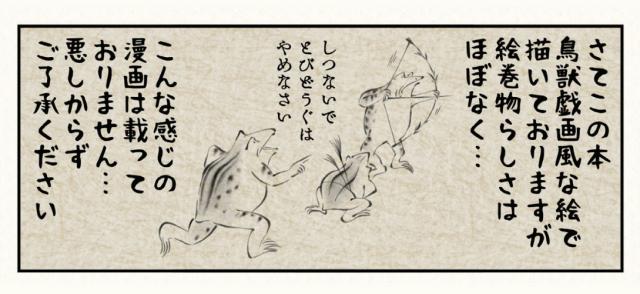 さてこの本
鳥獣戯画風な絵で
描いておりますが
絵巻物らしさは
ほぼなく…
しつないで
とびどうぐは
やめなさい
こんな感じの
漫画は載って
おりません…
悪しからず
ご了承ください